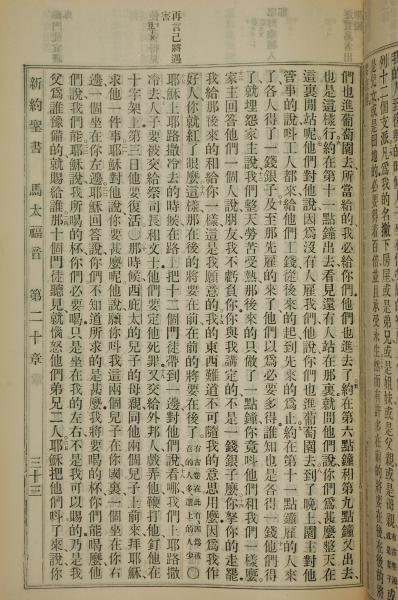 列十二個支派凡爲我的名撇下房屋或是弟兄或是姐妹或是父親或是母親
們也進葡萄園去所當給的我必給你們他們也進了約在第六點鐘和第九點鐘又出去
也是這樣行約在第十一點鐘出去看見還有人站在那裏就問他們說你們爲甚麼整天在
這裏閒站呢他們對他說因爲沒有人雇我們他說你們也進葡萄園去到了晚上園主對他
管事的說呌工人都來給他們工錢從後來的起到先來的爲止約在第十一點鐘雇的人來
了各人得了一錢銀子及至那先雇的來了他們以爲必要多得誰知也是各得一錢他們得
了就埋怨家主說我們整天勞苦受熱那後來的只做了一點鐘你竟呌他們和我們一樣麼
家主回答他們一個人說朋友我不虧負你你與我講定的不是一錢銀子麼你拏你的走罷
我給那後來的和給你一樣這是我願意的我的東西難道不可隨我的意思用麼因爲我作
好人你就紅了眼麼這樣那在後的將要在前在前的將要在後了有古卷在此有因爲被召的人多選上的人少〇
耶穌上耶路撒冷去的時候在路上把十二個門徒帶到一邊對他們說看哪我們上耶路撒
冷去人子要被交給祭司長和文士他們要定他死罪又交給外邦人戲弄他鞭打他釘他在
十字架上第三日他要復活〇那時候西庇太的兒子的母親同他兩個兒子上前來拜耶穌
求他一件事耶穌對他說你要甚麼呢他說願你呌我這兩個兒子在你國裏一個坐在你右
邊一個坐在你左邊耶穌回答說你們不知道所求的是甚麼我將要喝的杯你們能喝麼他
們說我們能耶穌說我所喝的杯你們必要喝只是坐在我的左右不是我可以賜的乃是我
父爲誰豫備的就賜給誰那十個門徒聽見就惱怒他們弟兄二人耶穌把他們呌了來說你
新約聖書 馬太福音 第二十章 三十三
再言己將遇害